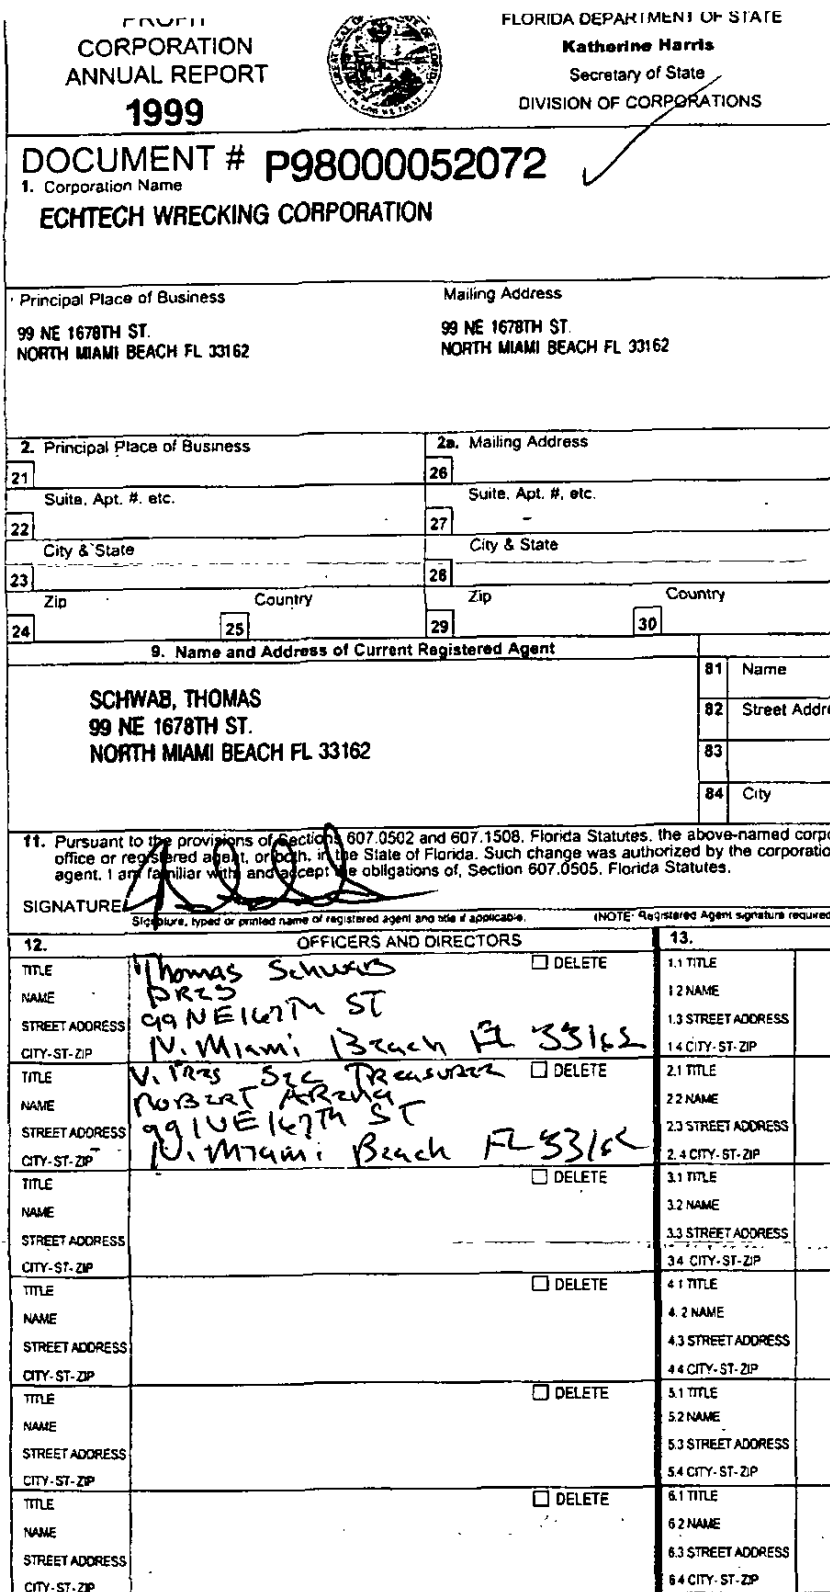 PROFIT
CORPORATION
ANNUAL REPORT
1999
FLORIDA DEPARTMENT OF STATE
Katherine Harris
Secretary of State
DIVISION OF CORPORATIONS
DOCUMENT # P98000052072
1. Corporation Name
ECHTECH WRECKING CORPORATION
Principal Place of Business
99 NE 1678TH ST.
NORTH MIAMI BEACH FL 33162
Mailing Address
99 NE 1678TH ST.
NORTH MIAMI BEACH FL 33162
2. Principal Place of Business
2a. Mailing Address
21
26
Suite, Apt. #, etc.
Suite, Apt. #, etc.
22
27
City & State
City & State
23
28
Zip
Country
Zip
Country
24
25
29
30
9. Name and Address of Current Registered Agent
SCHWAB, THOMAS
99 NE 1678TH ST.
NORTH MIAMI BEACH FL 33162
81 Name
82 Street Addre
83
84 City
11. Pursuant to the provisions of Sections 607.0502 and 607.1508, Florida Statutes, the above-named corpo
office or registered agent, or both, in the State of Florida. Such change was authorized by the corporatio
agent. I am familiar with, and accept the obligations of, Section 607.0505, Florida Statutes.
SIGNATURE
Signature, typed or printed name of registered agent and title if applicable.
(NOTE: Registered Agent signature required
12. OFFICERS AND DIRECTORS
13.
TITLE Thomas Schwab DELETE
NAME PRES
STREET ADDRESS 99 NE 167TH ST
CITY-ST-ZIP N. Miami Beach FL 33162
1.1 TITLE
1.2 NAME
1.3 STREET ADDRESS
1.4 CITY-ST-ZIP
TITLE V. Pres Sec Treasurer DELETE
NAME Robert Arena
STREET ADDRESS 99 NE 167TH ST
CITY-ST-ZIP N. Miami Beach FL 33162
2.1 TITLE
2.2 NAME
2.3 STREET ADDRESS
2.4 CITY-ST-ZIP
TITLE DELETE
NAME
STREET ADDRESS
CITY-ST-ZIP
3.1 TITLE
3.2 NAME
3.3 STREET ADDRESS
3.4 CITY-ST-ZIP
TITLE DELETE
NAME
STREET ADDRESS
CITY-ST-ZIP
4.1 TITLE
4.2 NAME
4.3 STREET ADDRESS
4.4 CITY-ST-ZIP
TITLE DELETE
NAME
STREET ADDRESS
CITY-ST-ZIP
5.1 TITLE
5.2 NAME
5.3 STREET ADDRESS
5.4 CITY-ST-ZIP
TITLE DELETE
NAME
STREET ADDRESS
CITY-ST-ZIP
6.1 TITLE
6.2 NAME
6.3 STREET ADDRESS
6.4 CITY-ST-ZIP